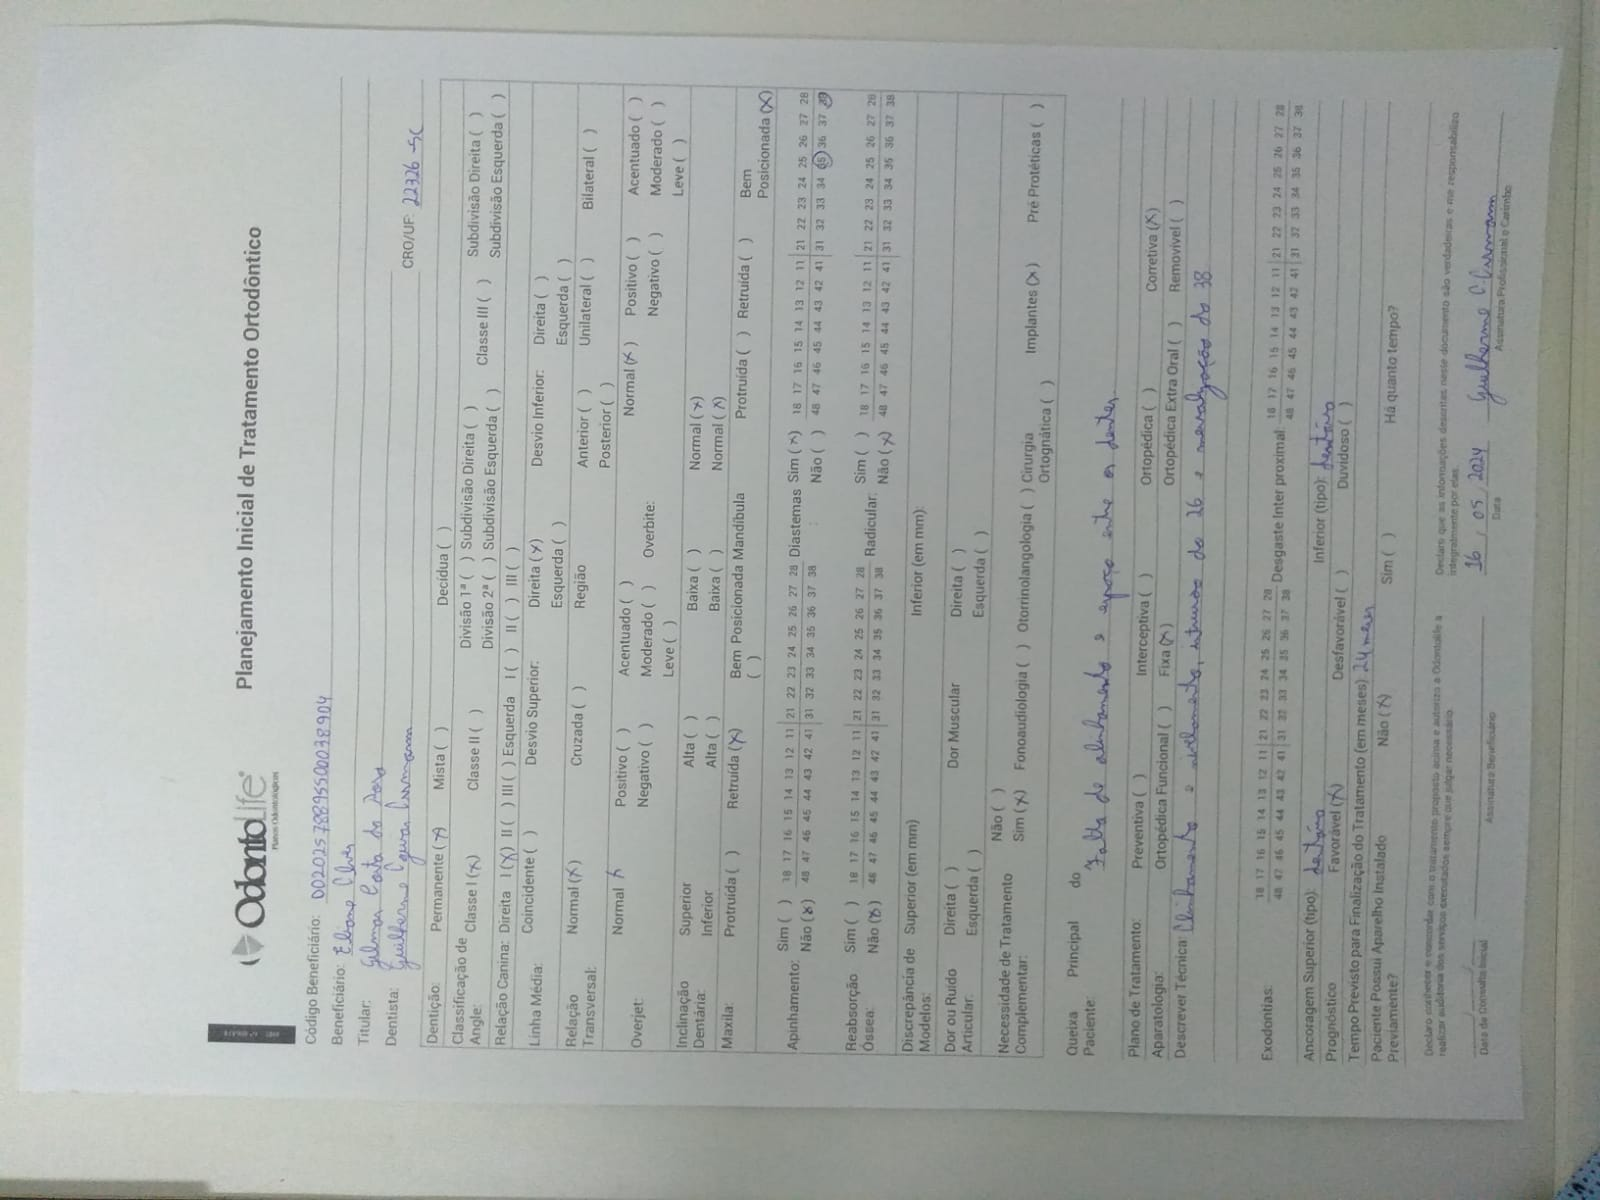 OdontoLife
Planos Odontológicos
Planejamento Inicial de Tratamento Ortodôntico
Código Beneficiário: 00202578895500038904
Beneficiário: Eliane Alves
Titular: Gilmar Costa da
Dentista: Guilherme CRO/UF: 22326-SC
Dentição: Permanente (x) Mista ( ) Decídua ( )
Classificação de Angle: Classe I (x) Classe II ( ) Divisão 1ª ( ) Subdivisão Direita ( ) Classe III ( ) Subdivisão Direita ( )
Divisão 2ª ( ) Subdivisão Esquerda ( ) Subdivisão Esquerda ( )
Relação Canina: Direita I (x) II ( ) III ( ) Esquerda I ( ) II ( ) III ( )
Linha Média: Coincidente ( ) Desvio Superior: Direita (x) Desvio Inferior: Direita ( )
Esquerda ( ) Esquerda ( )
Relação Transversal: Normal (x) Cruzada ( ) Região Anterior ( ) Unilateral ( ) Bilateral ( )
Posterior ( )
Overjet: Normal x Positivo ( ) Acentuado ( ) Overbite: Normal (x) Positivo ( ) Acentuado ( )
Negativo ( ) Moderado ( ) Negativo ( ) Moderado ( )
Leve ( ) Leve ( )
Inclinação Dentária: Superior Alta ( ) Baixa ( ) Normal (x)
Inferior Alta ( ) Baixa ( ) Normal (x)
Maxila: Protruída ( ) Retruída (x) Bem Posicionada ( ) Mandíbula Protruída ( ) Retruída ( ) Bem Posicionada (x)
Apinhamento: Sim ( ) 18 17 16 15 14 13 12 11 | 21 22 23 24 25 26 27 28 Diastemas Sim (x) 18 17 16 15 14 13 12 11 | 21 22 23 24 25 26 27 28
Não (x) 48 47 46 45 44 43 42 41 | 31 32 33 34 35 36 37 38 Não ( ) 48 47 46 45 44 43 42 41 | 31 32 33 34 35 36 37 38
Reabsorção Óssea: Sim ( ) 18 17 16 15 14 13 12 11 | 21 22 23 24 25 26 27 28 Radicular: Sim ( ) 18 17 16 15 14 13 12 11 | 21 22 23 24 25 26 27 28
Não (x) 48 47 46 45 44 43 42 41 | 31 32 33 34 35 36 37 38 Não (x) 48 47 46 45 44 43 42 41 | 31 32 33 34 35 36 37 38
Discrepância de Modelos: Superior (em mm) Inferior (em mm):
Dor ou Ruído Articular: Direita ( ) Dor Muscular Direita ( )
Esquerda ( ) Esquerda ( )
Necessidade de Tratamento Complementar: Não ( )
Sim (x) Fonoaudiologia ( ) Otorrinolangologia ( ) Cirurgia Ortognática ( ) Implantes (x) Pré Protéticas ( )
Queixa Principal do Paciente: Falta de alinhamento e espaço entre os dentes
Plano de Tratamento: Preventiva ( ) Interceptiva ( ) Ortopédica ( ) Corretiva (x)
Aparatologia: Ortopédica Funcional ( ) Fixa (x) Ortopédica Extra Oral ( ) Removível ( )
Descrever Técnica: Alinhamento e nivelamento, intrusão do 26 e mesialização do 38
Exodontias: 18 17 16 15 14 13 12 11 | 21 22 23 24 25 26 27 28 Desgaste Inter proximal: 18 17 16 15 14 13 12 11 | 21 22 23 24 25 26 27 28
48 47 46 45 44 43 42 41 | 31 32 33 34 35 36 37 38 48 47 46 45 44 43 42 41 | 31 32 33 34 35 36 37 38
Ancoragem Superior (tipo): dentário Inferior (tipo): dentário
Prognóstico Favorável (x) Desfavorável ( ) Duvidoso ( )
Tempo Previsto para Finalização do Tratamento (em meses) 24 meses
Paciente Possui Aparelho Instalado Previamente? Não (x) Sim ( ) Há quanto tempo?
Declaro conhecer e concordar com o tratamento proposto acima e autorizo a Odontolife a realizar auditoria dos serviços executados sempre que julgar necessário.
Declaro que as informações descritas neste documento são verdadeiras e me responsabilizo integralmente por elas.
16 / 05 / 2024 Guilherme C.
Data da Consulta Inicial Assinatura Beneficiário Data Assinatura Profissional e Carimbo